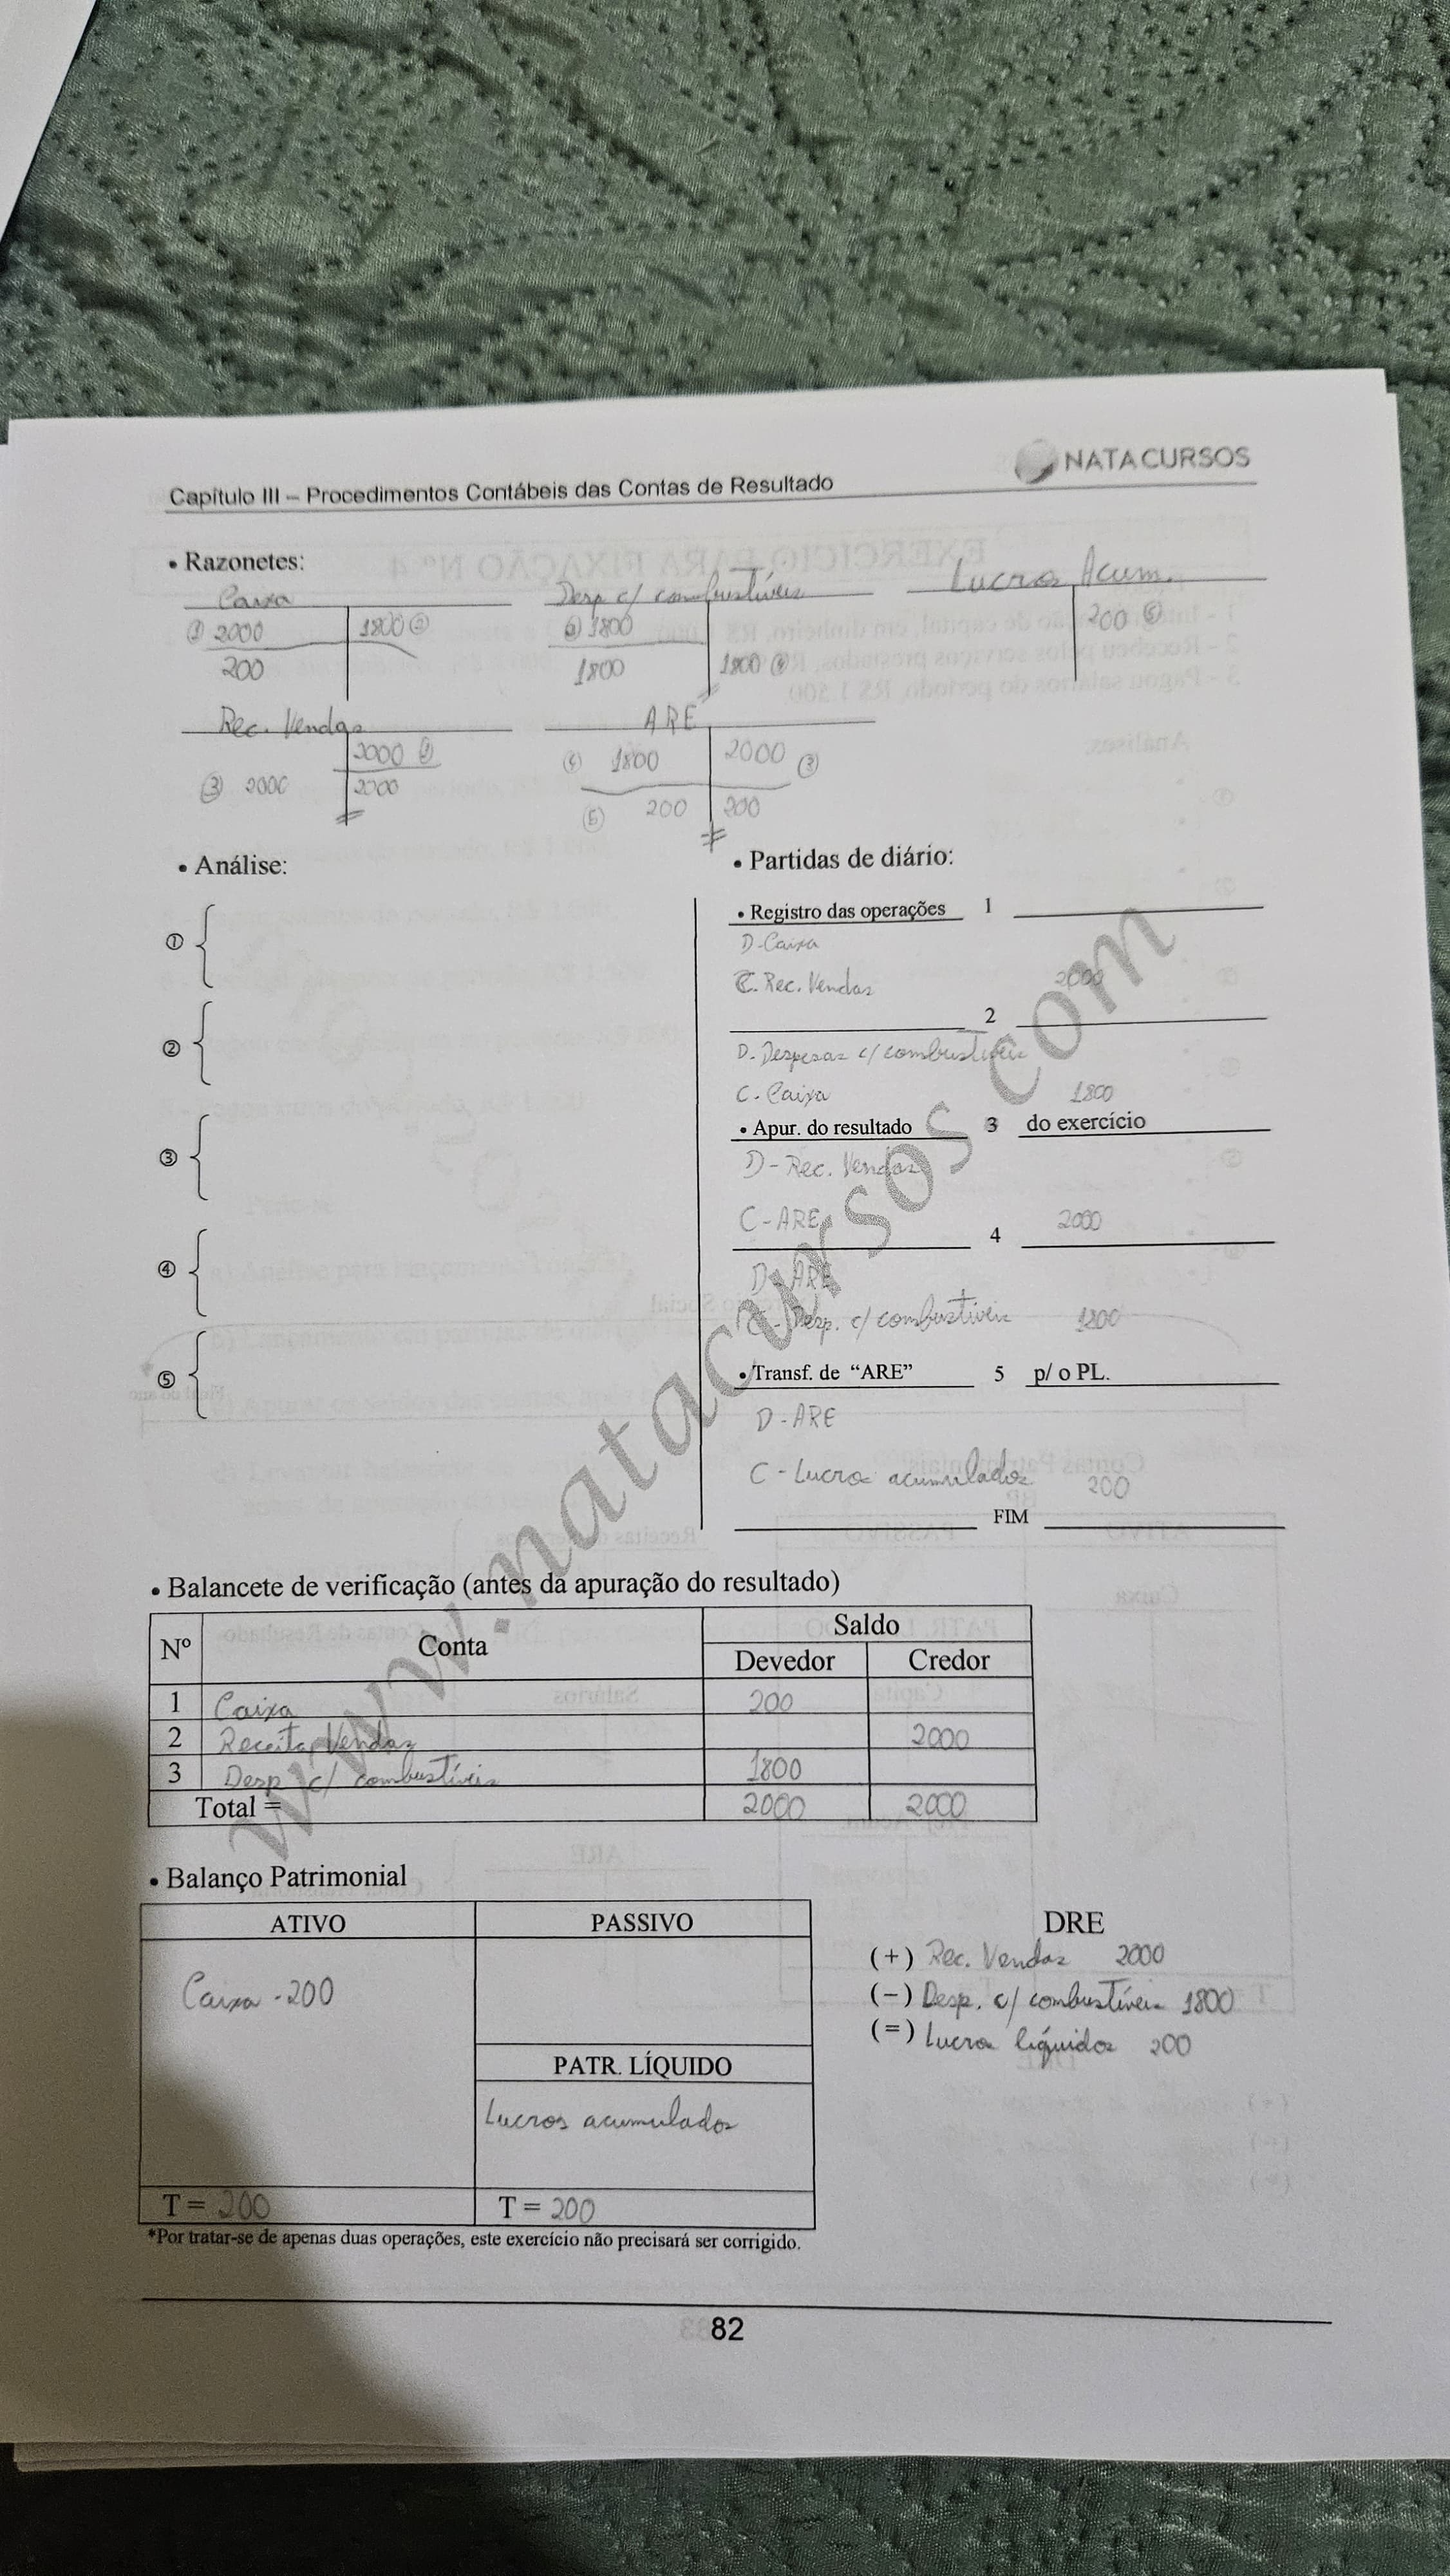 NATA CURSOS
Capítulo III – Procedimentos Contábeis das Contas de Resultado
• Razonetes:
Caixa
① 2000 1800 ②
200
Desp c/ combustíveis
② 1800
1800 1800 ④
Lucros Acum.
200 ⑤
Rec. Vendas
2000 ①
③ 2000 2000
ARE
④ 1800 2000 ③
⑤ 200 200
• Análise:
①
②
③
④
⑤
• Partidas de diário:
• Registro das operações 1
D-Caixa
C. Rec. Vendas 2000
2
D. Despesas c/ combustíveis
C. Caixa 1800
• Apur. do resultado 3 do exercício
D- Rec. Vendas
C-ARE 2000
4
D- ARE
C- Desp. c/ combustíveis 1800
• Transf. de “ARE” 5 p/ o PL.
D-ARE
C- Lucros acumulados 200
FIM
www.natacursos.com
• Balancete de verificação (antes da apuração do resultado)
Nº Conta Saldo
Devedor Credor
1 Caixa 200
2 Receita Vendas 2000
3 Desp c/ combustíveis 1800
Total = 2000 2000
• Balanço Patrimonial
ATIVO PASSIVO
Caixa -200
PATR. LÍQUIDO
Lucros acumulados
T = 200 T = 200
DRE
(+) Rec. Vendas 2000
(−) Desp. c/ combustíveis 1800
(=) Lucros líquidos 200
*Por tratar-se de apenas duas operações, este exercício não precisará ser corrigido.
82